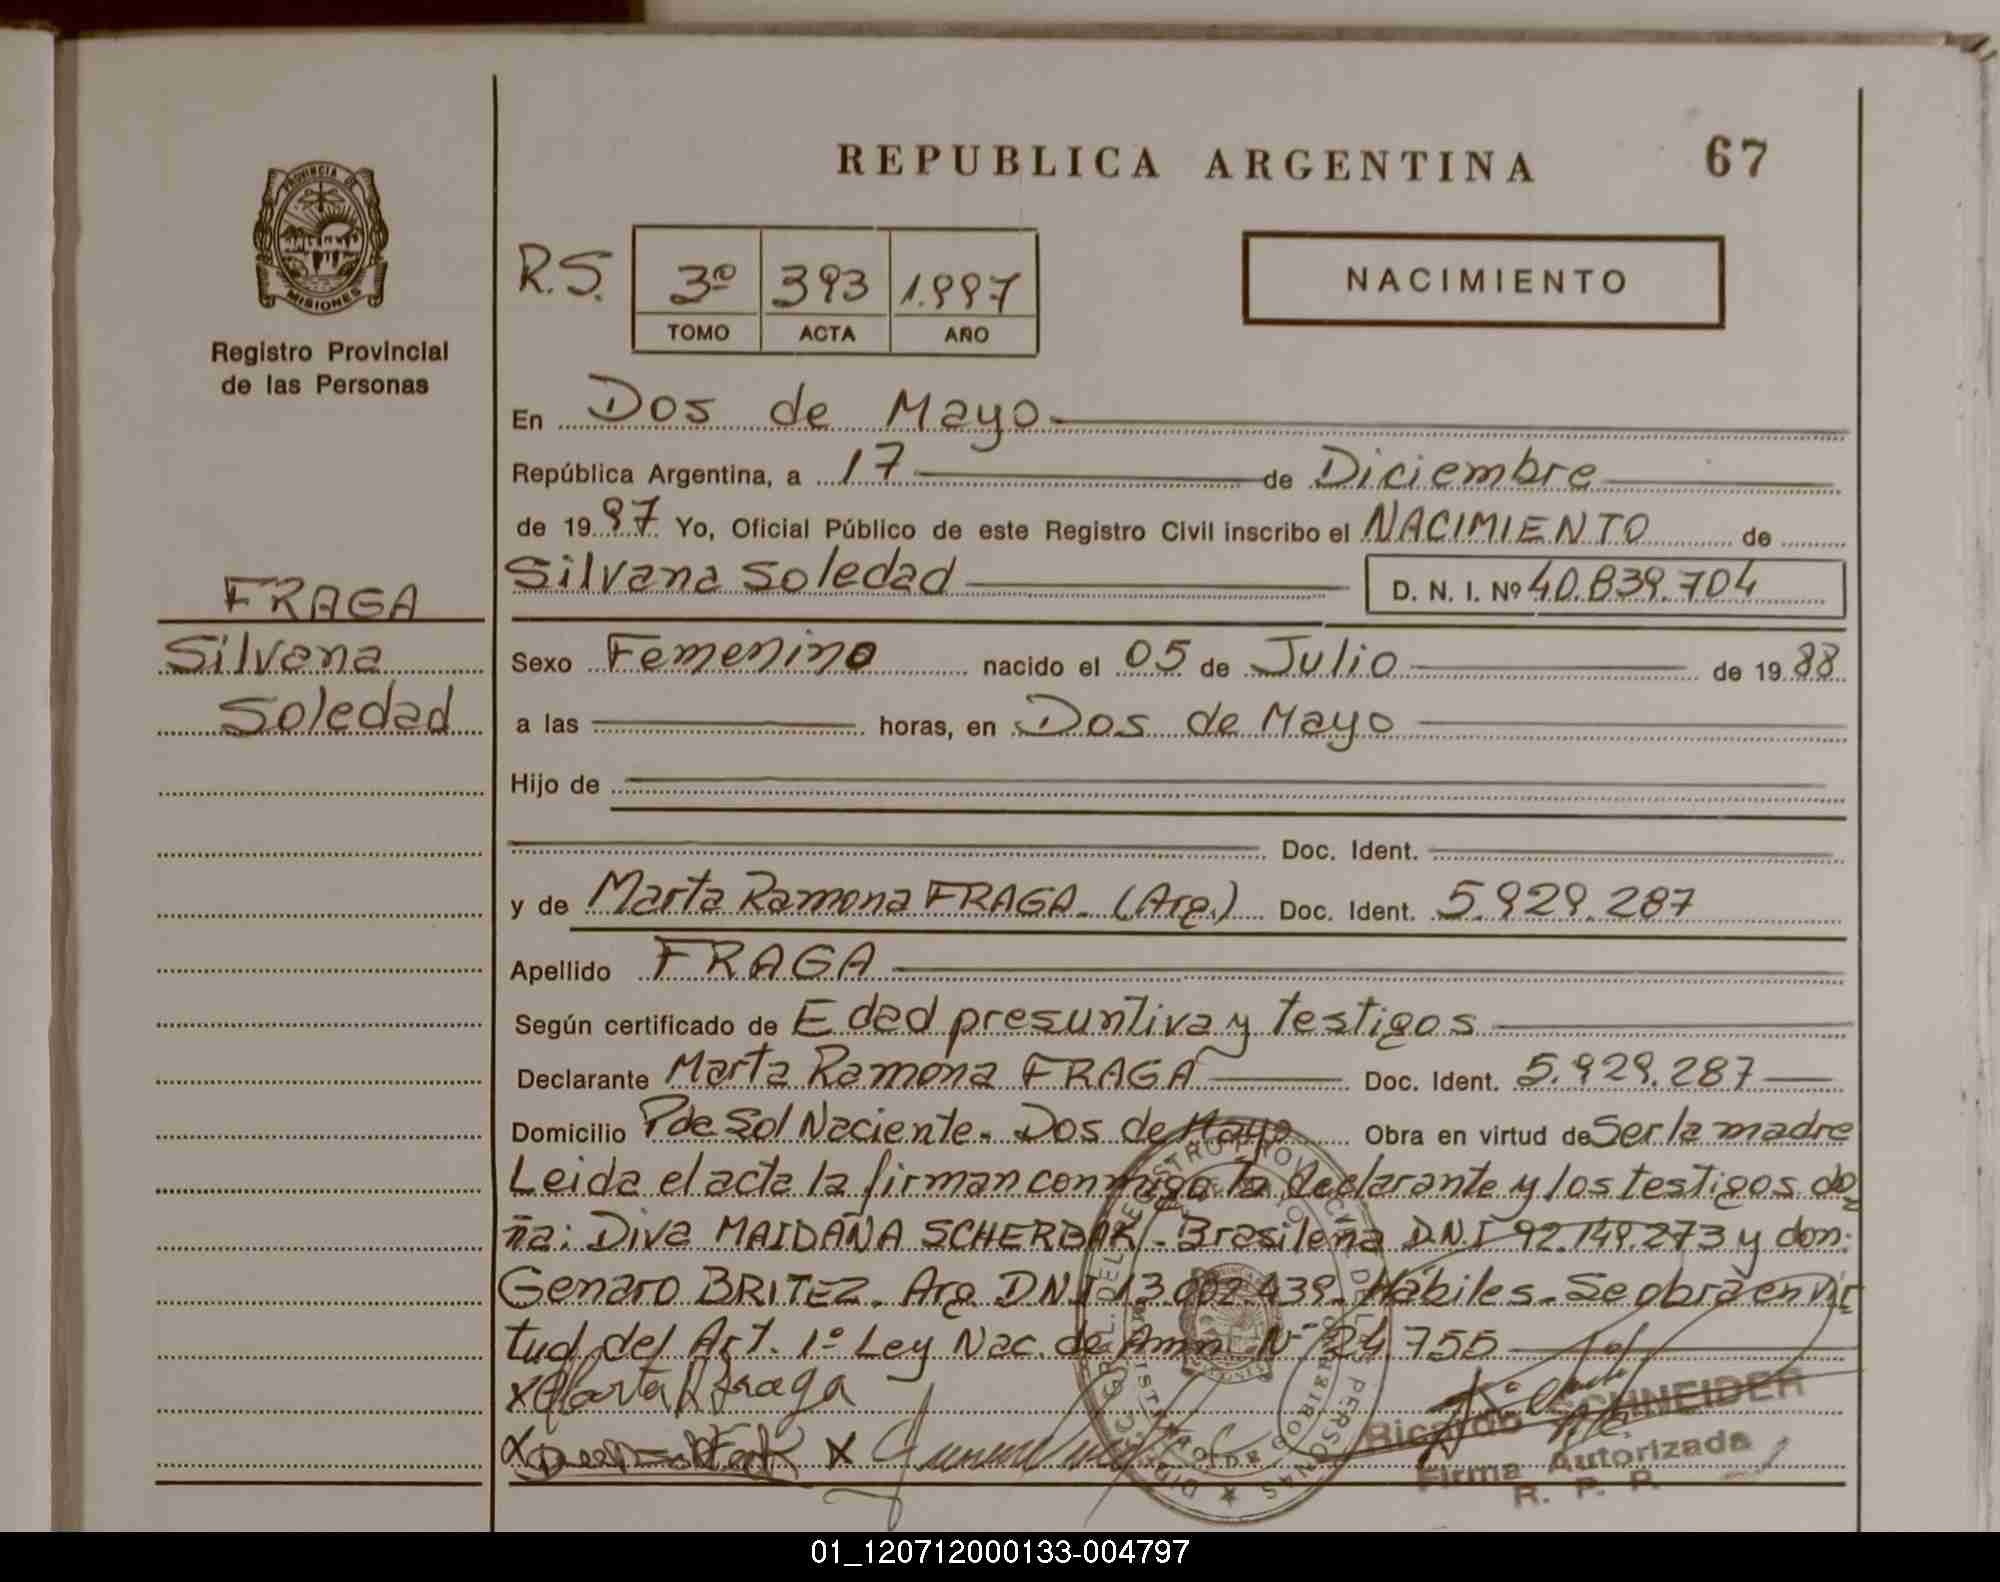 REPUBLICA ARGENTINA
67
PROVINCIA DE
MISIONES
Registro Provincial
de las Personas
R.S.
3º 393 1.997
TOMO ACTA AÑO
NACIMIENTO
En Dos de Mayo
República Argentina, a 17 de Diciembre
de 1997 Yo, Oficial Público de este Registro Civil inscribo el NACIMIENTO de
Silvana Soledad D. N. I. Nº 40.839.704
FRAGA
Silvana
Soledad
Sexo Femenino nacido el 05 de Julio de 1988
a las horas, en Dos de Mayo
Hijo de
Doc. Ident.
y de Marta Ramona FRAGA. (Arg.) Doc. Ident. 5.929.287
Apellido FRAGA
Según certificado de Edad presuntiva y testigos
Declarante Marta Ramona FRAGA Doc. Ident. 5.929.287
Domicilio Pde Sol Naciente. Dos de Mayo Obra en virtud de Ser la madre
Leida el acta la firman conmigo la declarante y los testigos do
ña: Diva MAIDAÑA SCHERBAK. Brasileña D.N.I 92.149.273 y don:
Genaro BRITEZ. Arg. DNI 13.002.439. Hábiles. Se obra en vir
tud del Art. 1º Ley Nac. de Amn. Nº 24.755
x Marta R Fraga
x x
Ricardo SCHNEIDER
Firma Autorizada
R. P. P.
01_120712000133-004797